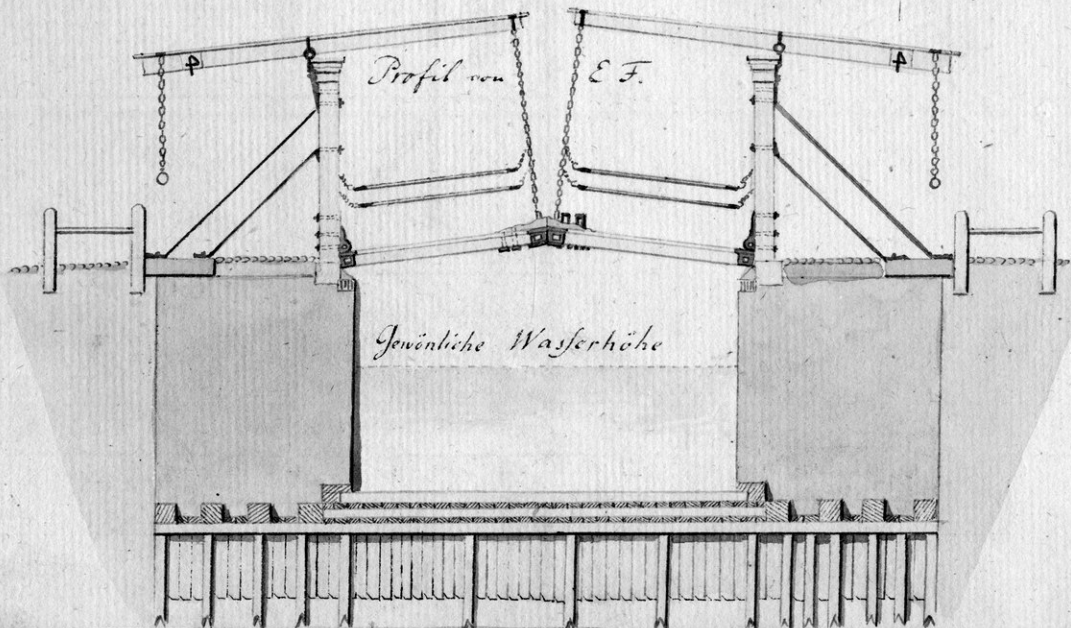 4
4
Profil von E F.
Gewönliche Wasserhöhe